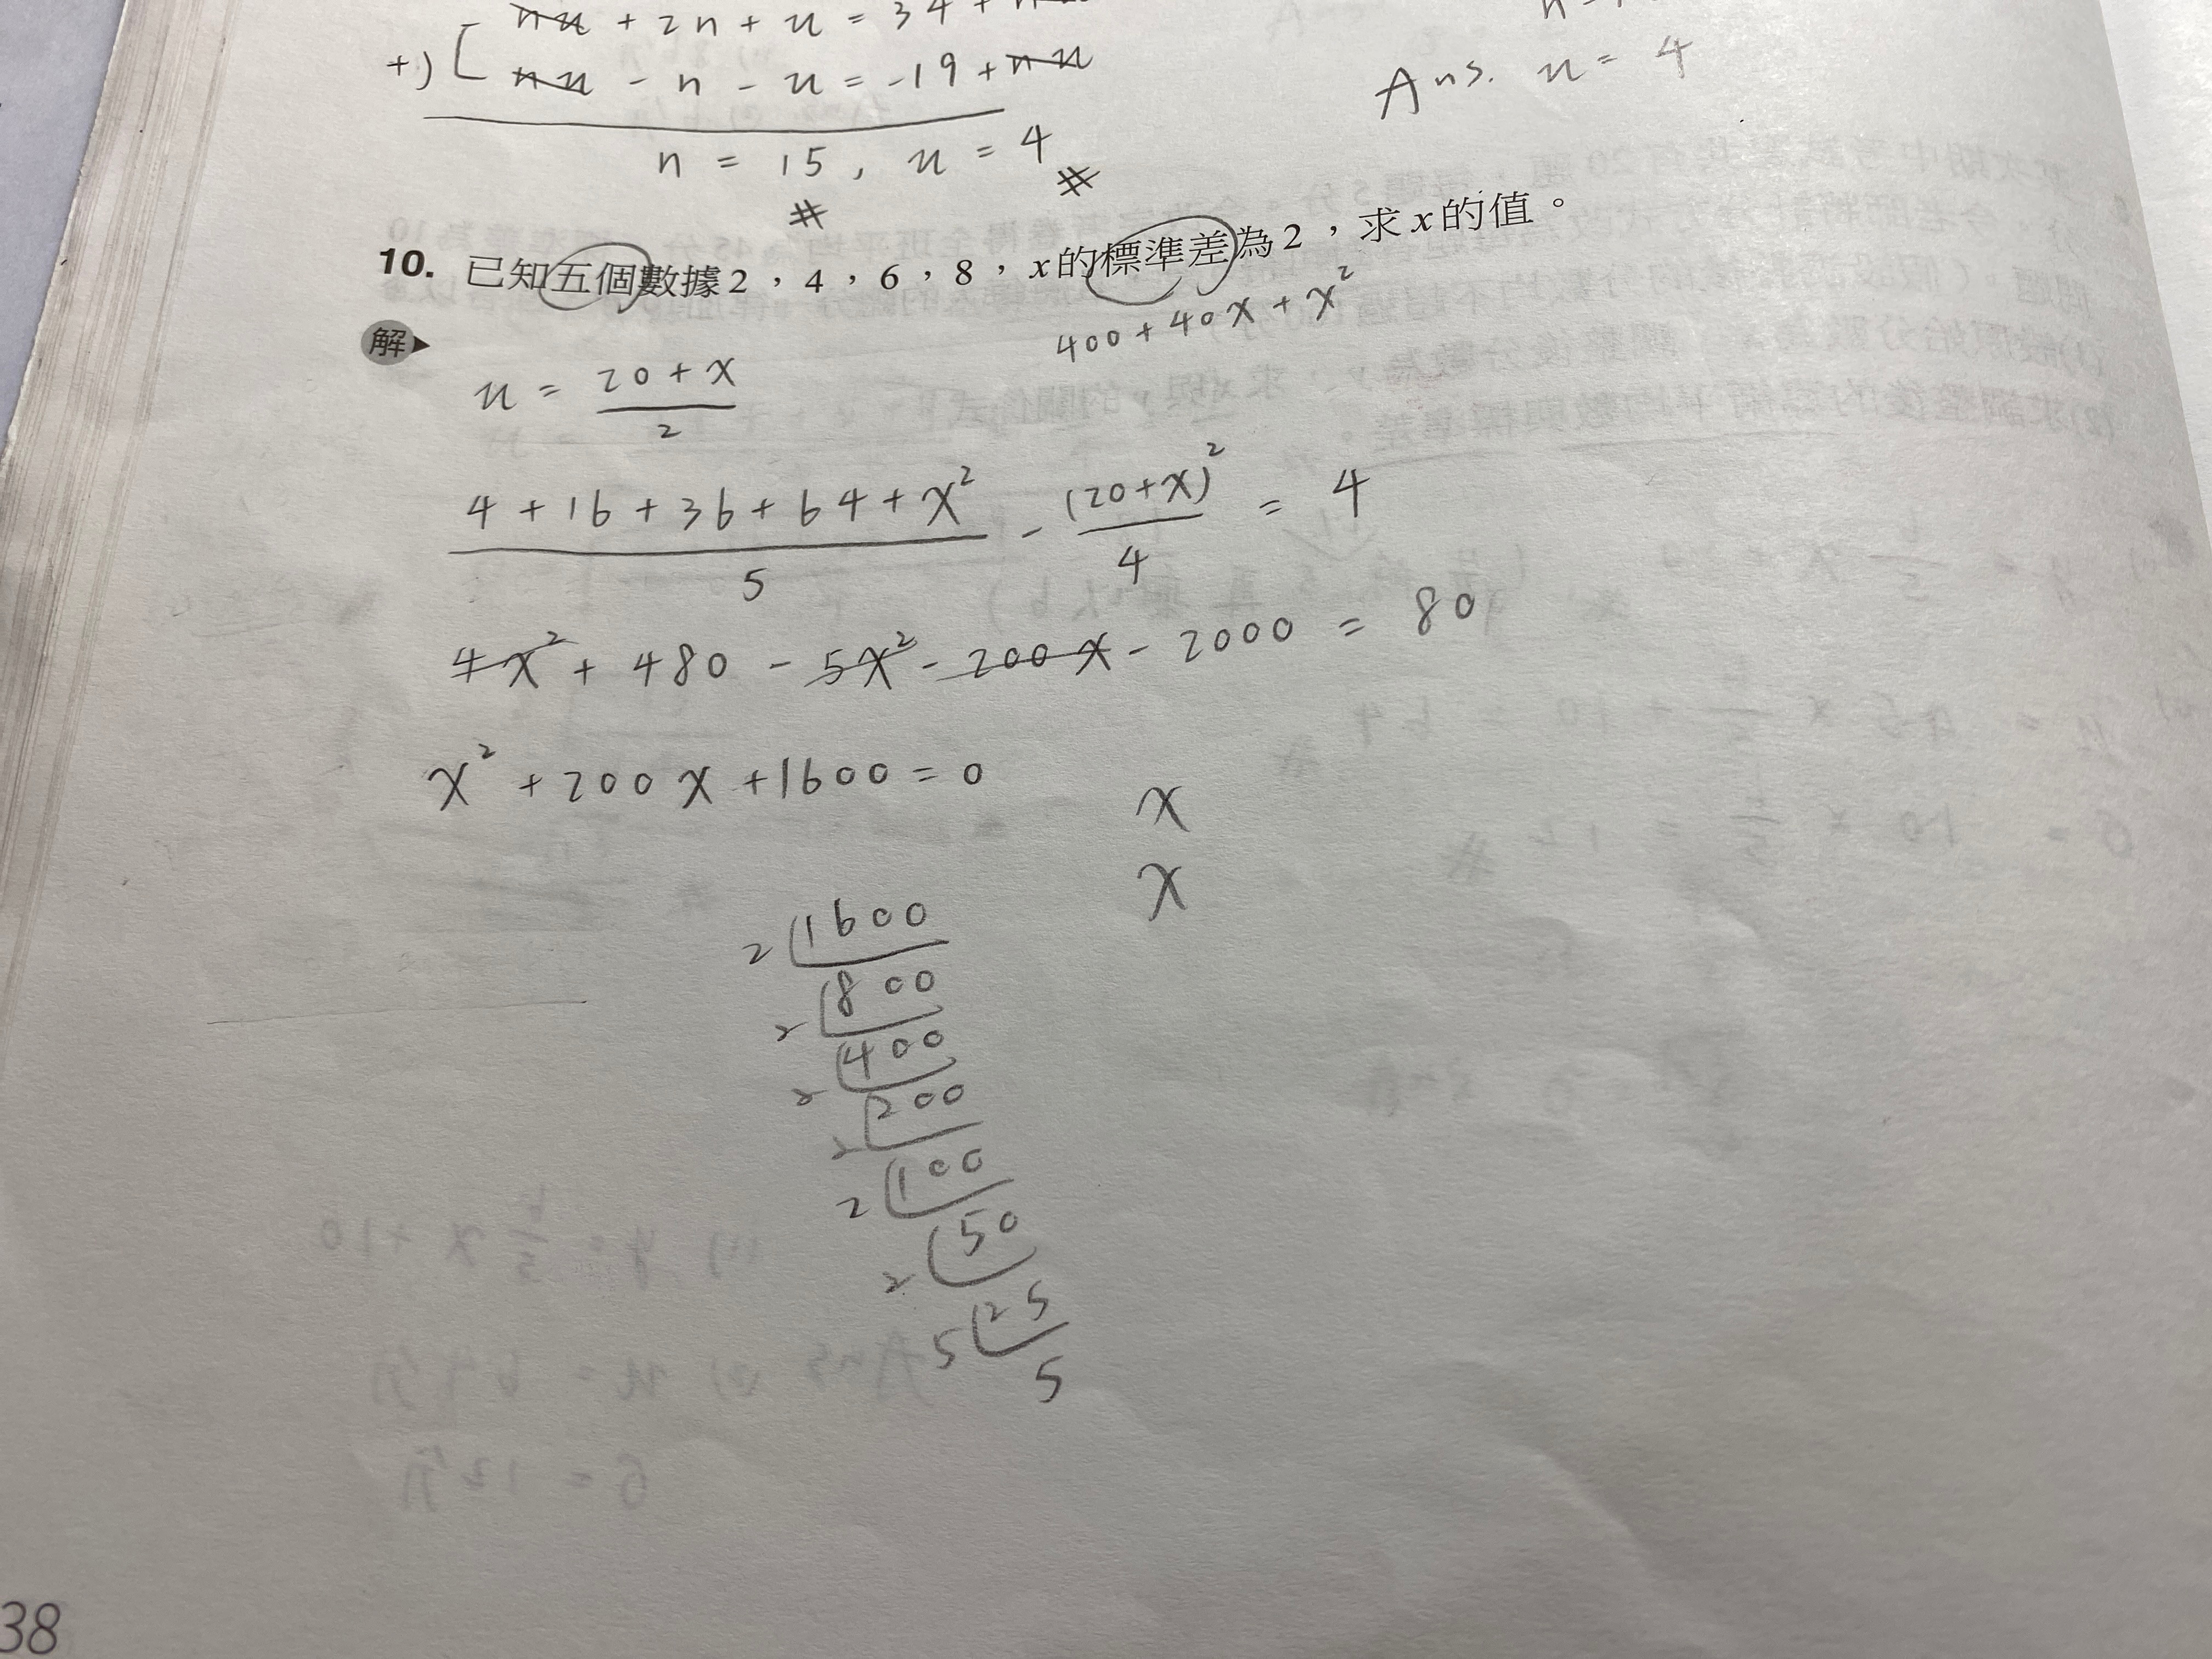 nu + 2n + u = 34 +
+) nu - n - u = -19 + nu
n = 15 , u = 4
Ans. u = 4
10. 已知五個數據2,4,6,8,x的標準差為2,求x的值。
400 + 40x + x²
解
u = (20 + x)/2
(4 + 16 + 36 + 64 + x²)/5 - (20 + x)²/4 = 4
4x² + 480 - 5x² - 200x - 2000 = 80
x² + 200x + 1600 = 0
x
x
2 1600
2 800
2 400
2 200
2 100
2 50
5 25
5
38